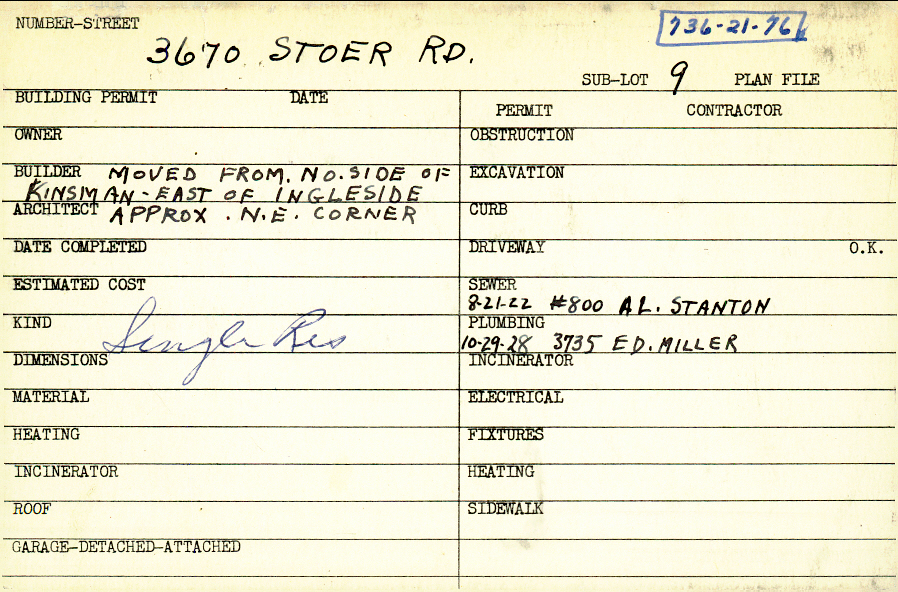 NUMBER-STREET
736-21-76
3670 STOER RD.
SUB-LOT 9 PLAN FILE
BUILDING PERMIT DATE
PERMIT CONTRACTOR
OWNER
OBSTRUCTION
BUILDER MOVED FROM. NO. SIDE OF
KINSMAN-EAST OF INGLESIDE
EXCAVATION
ARCHITECT APPROX. N.E. CORNER
CURB
DATE COMPLETED
DRIVEWAY O.K.
ESTIMATED COST
SEWER
8-21-22 #800 AL. STANTON
KIND Single Res
PLUMBING
10-29-28 3735 ED. MILLER
DIMENSIONS
INCINERATOR
MATERIAL
ELECTRICAL
HEATING
FIXTURES
INCINERATOR
HEATING
ROOF
SIDEWALK
GARAGE-DETACHED-ATTACHED